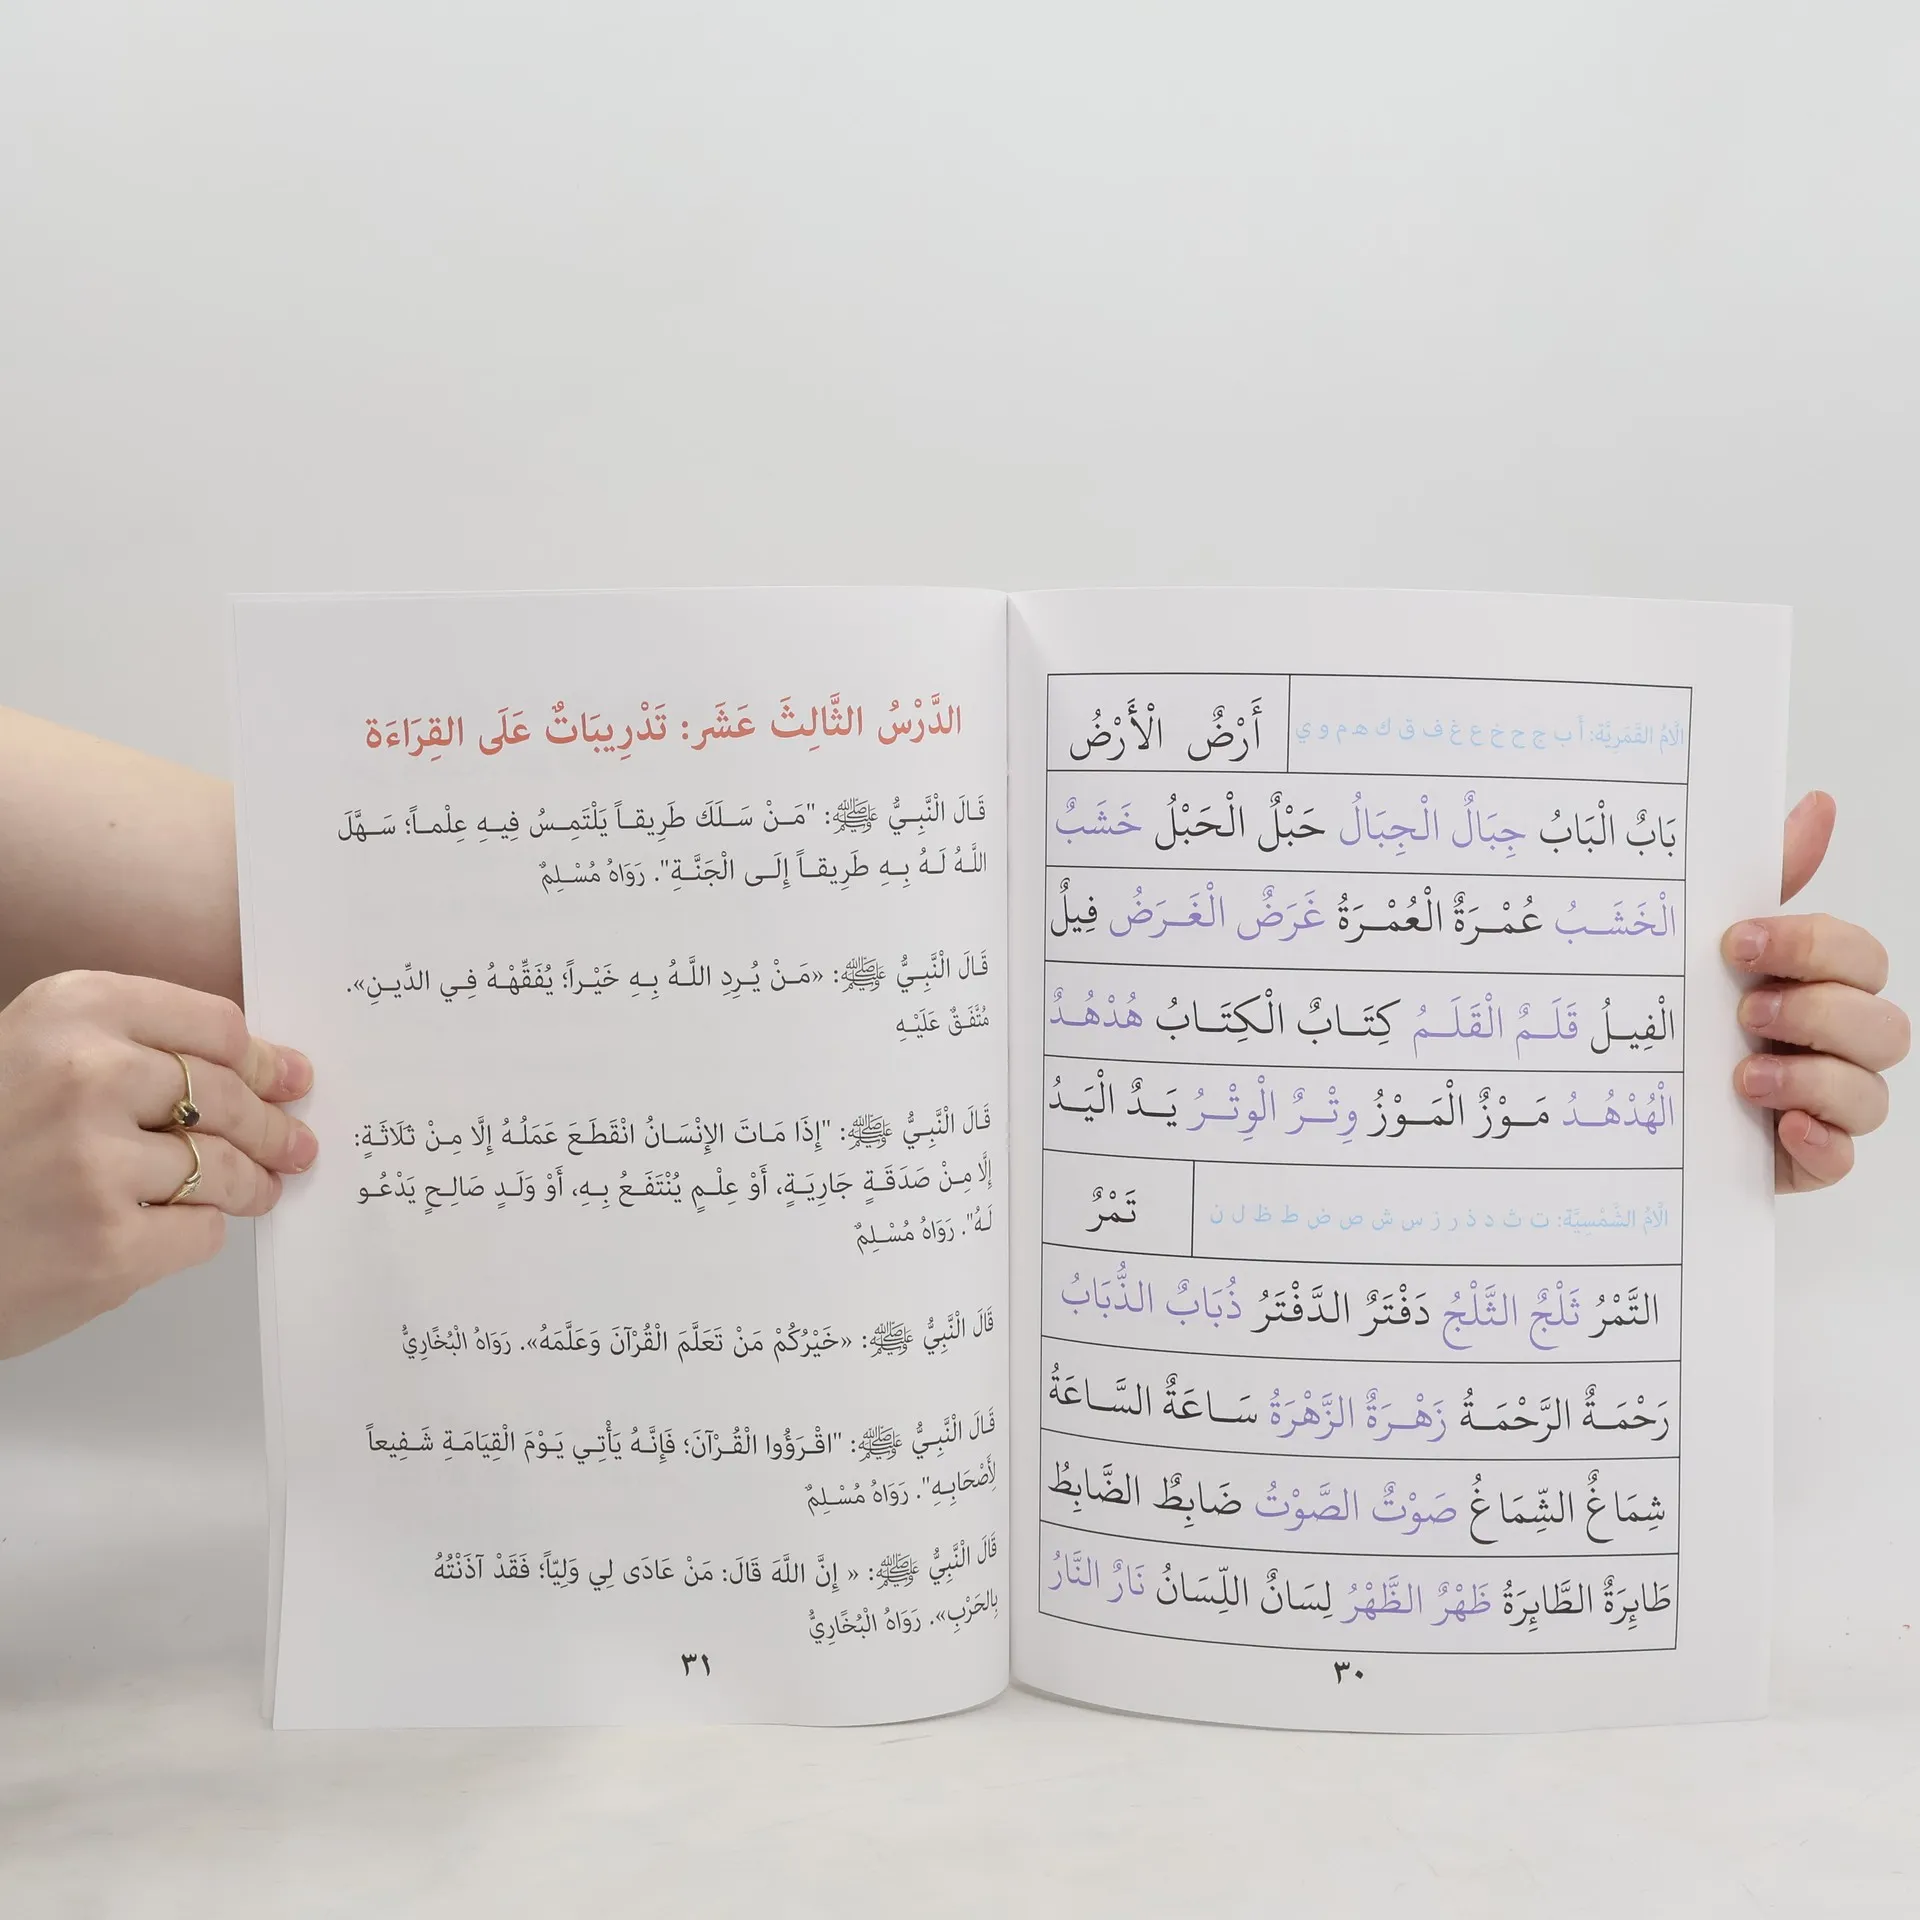 الَّامُ القَمَرِيَّة: أ ب ج ح خ ع غ ف ق ك ه م و ي
أَرْضٌ الْأَرْضُ
بَابٌ الْبَابُ جِبَالٌ الْجِبَالُ حَبْلٌ الْحَبْلُ خَشَبٌ
الْخَشَبُ عُمْرَةٌ الْعُمْرَةُ غَرَضٌ الْغَرَضُ فِيلٌ
الْفِيلُ قَلَمٌ الْقَلَمُ كِتَابٌ الْكِتَابُ هُدْهُدٌ
الْهُدْهُدُ مَوْزٌ الْمَوْزُ وِتْرٌ الْوِتْرُ يَدٌ الْيَدُ
الَّامُ الشَّمْسِيَّة: ت ث د ذ ر ز س ش ص ض ط ظ ل ن
تَمْرٌ
التَّمْرُ ثَلْجٌ الثَّلْجُ دَفْتَرٌ الدَّفْتَرُ ذُبَابٌ الذُّبَابُ
رَحْمَةٌ الرَّحْمَةُ زَهْرَةٌ الزَّهْرَةُ سَاعَةٌ السَّاعَةُ
شِمَاغٌ الشِّمَاغُ صَوْتٌ الصَّوْتُ ضَابِطٌ الضَّابِطُ
طَائِرَةٌ الطَّائِرَةُ ظَهْرٌ الظَّهْرُ لِسَانٌ اللِّسَانُ نَارٌ النَّارُ
٣٠
الدَّرْسُ الثَّالِثَ عَشَر: تَدْرِيبَاتٌ عَلَى القِرَاءَة
قَالَ الْنَّبِيُّ ﷺ: "مَنْ سَلَكَ طَرِيقاً يَلْتَمِسُ فِيهِ عِلْماً؛ سَهَّلَ
اللَّهُ لَهُ بِهِ طَرِيقاً إِلَى الْجَنَّةِ". رَوَاهُ مُسْلِمٌ
قَالَ الْنَّبِيُّ ﷺ: «مَنْ يُرِدِ اللَّهُ بِهِ خَيْراً؛ يُفَقِّهْهُ فِي الدِّينِ».
مُتَّفَقٌ عَلَيْهِ
قَالَ الْنَّبِيُّ ﷺ: "إِذَا مَاتَ الإِنْسَانُ انْقَطَعَ عَمَلُهُ إِلَّا مِنْ ثَلَاثَةٍ:
إِلَّا مِنْ صَدَقَةٍ جَارِيَةٍ، أَوْ عِلْمٍ يُنْتَفَعُ بِهِ، أَوْ وَلَدٍ صَالِحٍ يَدْعُو
لَهُ". رَوَاهُ مُسْلِمٌ
قَالَ الْنَّبِيُّ ﷺ: «خَيْرُكُمْ مَنْ تَعَلَّمَ الْقُرْآنَ وَعَلَّمَهُ». رَوَاهُ الْبُخَّارِيُّ
قَالَ الْنَّبِيُّ ﷺ: "اقْرَؤُوا الْقُرْآنَ؛ فَإِنَّهُ يَأْتِي يَوْمَ الْقِيَامَةِ شَفِيعاً
لِأَصْحَابِهِ". رَوَاهُ مُسْلِمٌ
قَالَ الْنَّبِيُّ ﷺ: « إِنَّ اللَّهَ قَالَ: مَنْ عَادَى لِي وَلِيّاً؛ فَقَدْ آذَنْتُهُ
بِالحَرْبِ». رَوَاهُ الْبُخَّارِيُّ
٣١